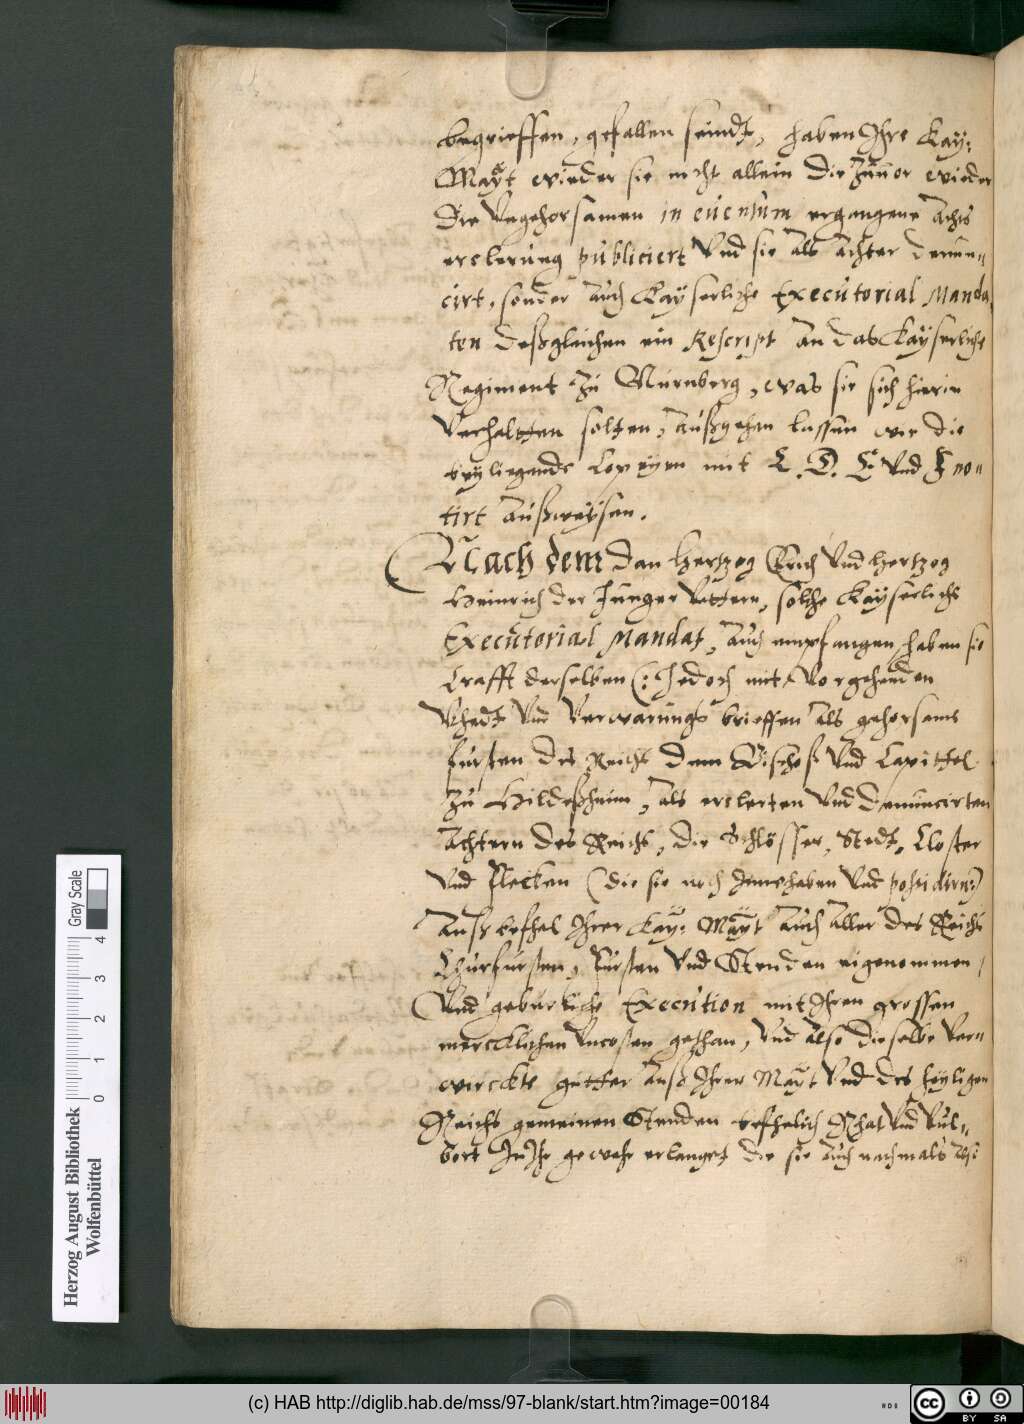 begrieffen, gefallen seindt, haben Ihre Kay:
Maÿt wieder sie nicht allein die zuuor wieder
die Vngehorsamen in euentum ergangene Achts
erclerung publiciert Vnd sie als Achter denun„
cirt, sonder auch Kayserliche Executorial Manda
ten deßgleichen ein Rescript An das Kayserliche
Regiment zu Nurnberg, was sie sich hierin
Verhaltten solten, Außgehen lassen wie die
beyliegende Copeyen mit C. D. E. Vnd F no„
tirt Außweysen.
Nach dem dan Hertzog Erich Vnd Hertzog
Heinrich der Junger Vettern, solche Kayserliche
Executorial Mandat, Auch empfangen haben sie
Crafft derselben (: Jedoch mit Vorgehenden
Vhedt Vnd Verwarungs brieffen Als gehorsame
fursten des Reichs dem Bischoff Vnd Capittel
zu Hildeßheim, Als erclerten Vnd Denuncirten
Achtern des Reichs, die Schlösser, Stedt, Closter
Vnd Flecken (die sie noch Innehaben Vnd possidirn)
Auß befhel Ihrer Kay: Maÿt Auch Aller des Reichs
Churfursten, Fursten Vnd Stenden eigenommen,
Vnd geburliche Execution mit Ihren grossen
mercklichen Vncosten gethan, Vnd Also dieselbe Ver„
wirckte gutter Auß Ihrer Maÿt Vnd des heyligen
Reichs gemeinen Stenden befhelich Rhat Vnd Vul„
bort In Ihr gewehr erlanget die sie Auch nachmals
Herzog August Bibliothek
Wolfenbüttel
Gray Scale
0 1 2 3 4
(c) HAB http://diglib.hab.de/mss/97-blank/start.htm?image=00184
cc BY SA